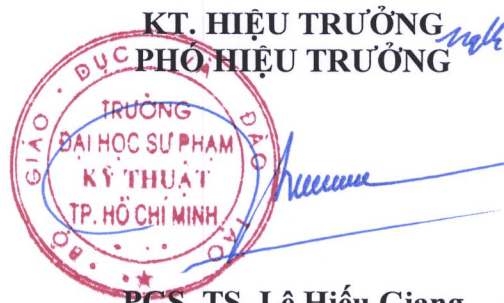 KT. HIỆU TRƯỞNG
PHÓ HIỆU TRƯỞNG
BỘ GIÁO DỤC VÀ ĐÀO TẠO
TRƯỜNG
ĐẠI HỌC SƯ PHẠM
KỸ THUẬT
TP. HỒ CHÍ MINH
PGS. TS. Lê Hiếu Giang